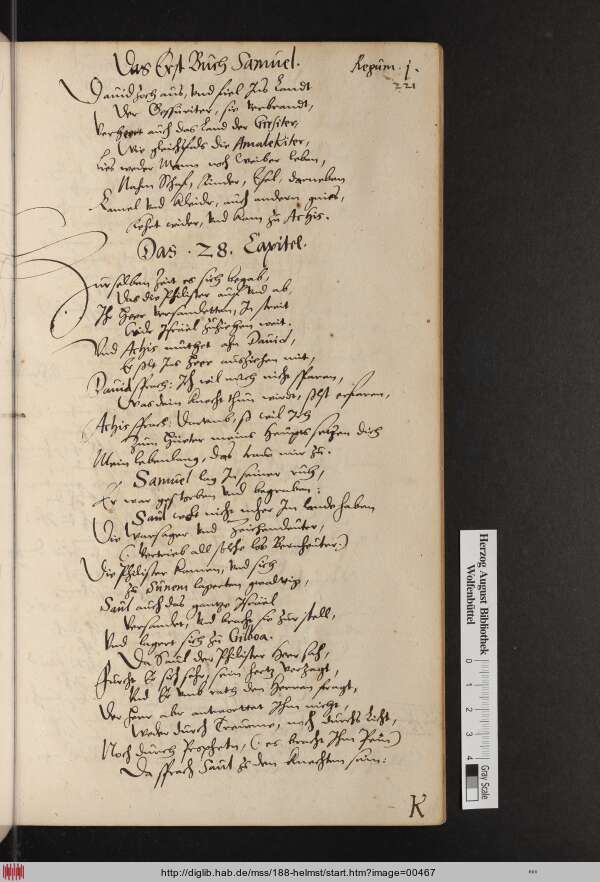 Das Erst Buch Samuel.
Regum. j.
221
Dauid zoch aus, vnd fiel Ins Landt
Der Gessuriter, sie verbrandt,
Verhert auch das Land der Girsiter,
Wie gleichsfals die Amalekiter,
lies weder Mann noch Weiber leben,
Nahm Schaf, Rinder, Esel, darneben
Camel vnd Kleider, auch andern
kehrt wider, vnd kam zu Achis.
Das .28. Capitel.
Zur selben Zeit es sich begab,
Das die Philister auff vnd ab,
Ihr Heer versamleten, In streit
Wider Israel zuziehen weit.
Vnd Achis muthet ahn Dauid,
Er solt Ins Heer ausziehen mit,
Dauid sprach: Ich wil mich nicht sparen,
Was dein knecht thun wirdt, solst erfaren,
Achis sprach: Darumb, so wil Ich
Zum Hüeter meins Haupts setzen dich
Mein lebenlang, das traw mir zu.
Samuel lag In seiner ruh,
Er war gestorben vnd begraben:
Saul wolt nicht mher Im Lande haben
Die Warsager vnd Zeichendeuter,
(: Vertrieb all solche los Bernheuter:)
Die Philister kamen, vnd sich
Zu Sunem lagerten
Saul auch das gantze Israel
Versamlet, vnd bracht sie zur stell,
Vnd lagert sich zu Gilboa.
Da Saul der Philister Heer sah,
Furcht Er sich sehr, sein hertz verzagt,
Vnd Er vmb rath den Herren fragt,
Der Herr aber antworttet Ihm nicht,
Weder durch Treume, noch durchs Licht,
Noch durch Propheten, (: es bracht Ihm Pein:)
Da sprach Saul zu den knechten sein:
K
Herzog August Bibliothek
Wolfenbüttel
0 1 2 3 4
Gray Scale
http://diglib.hab.de/mss/188-helmst/start.htm?image=00467